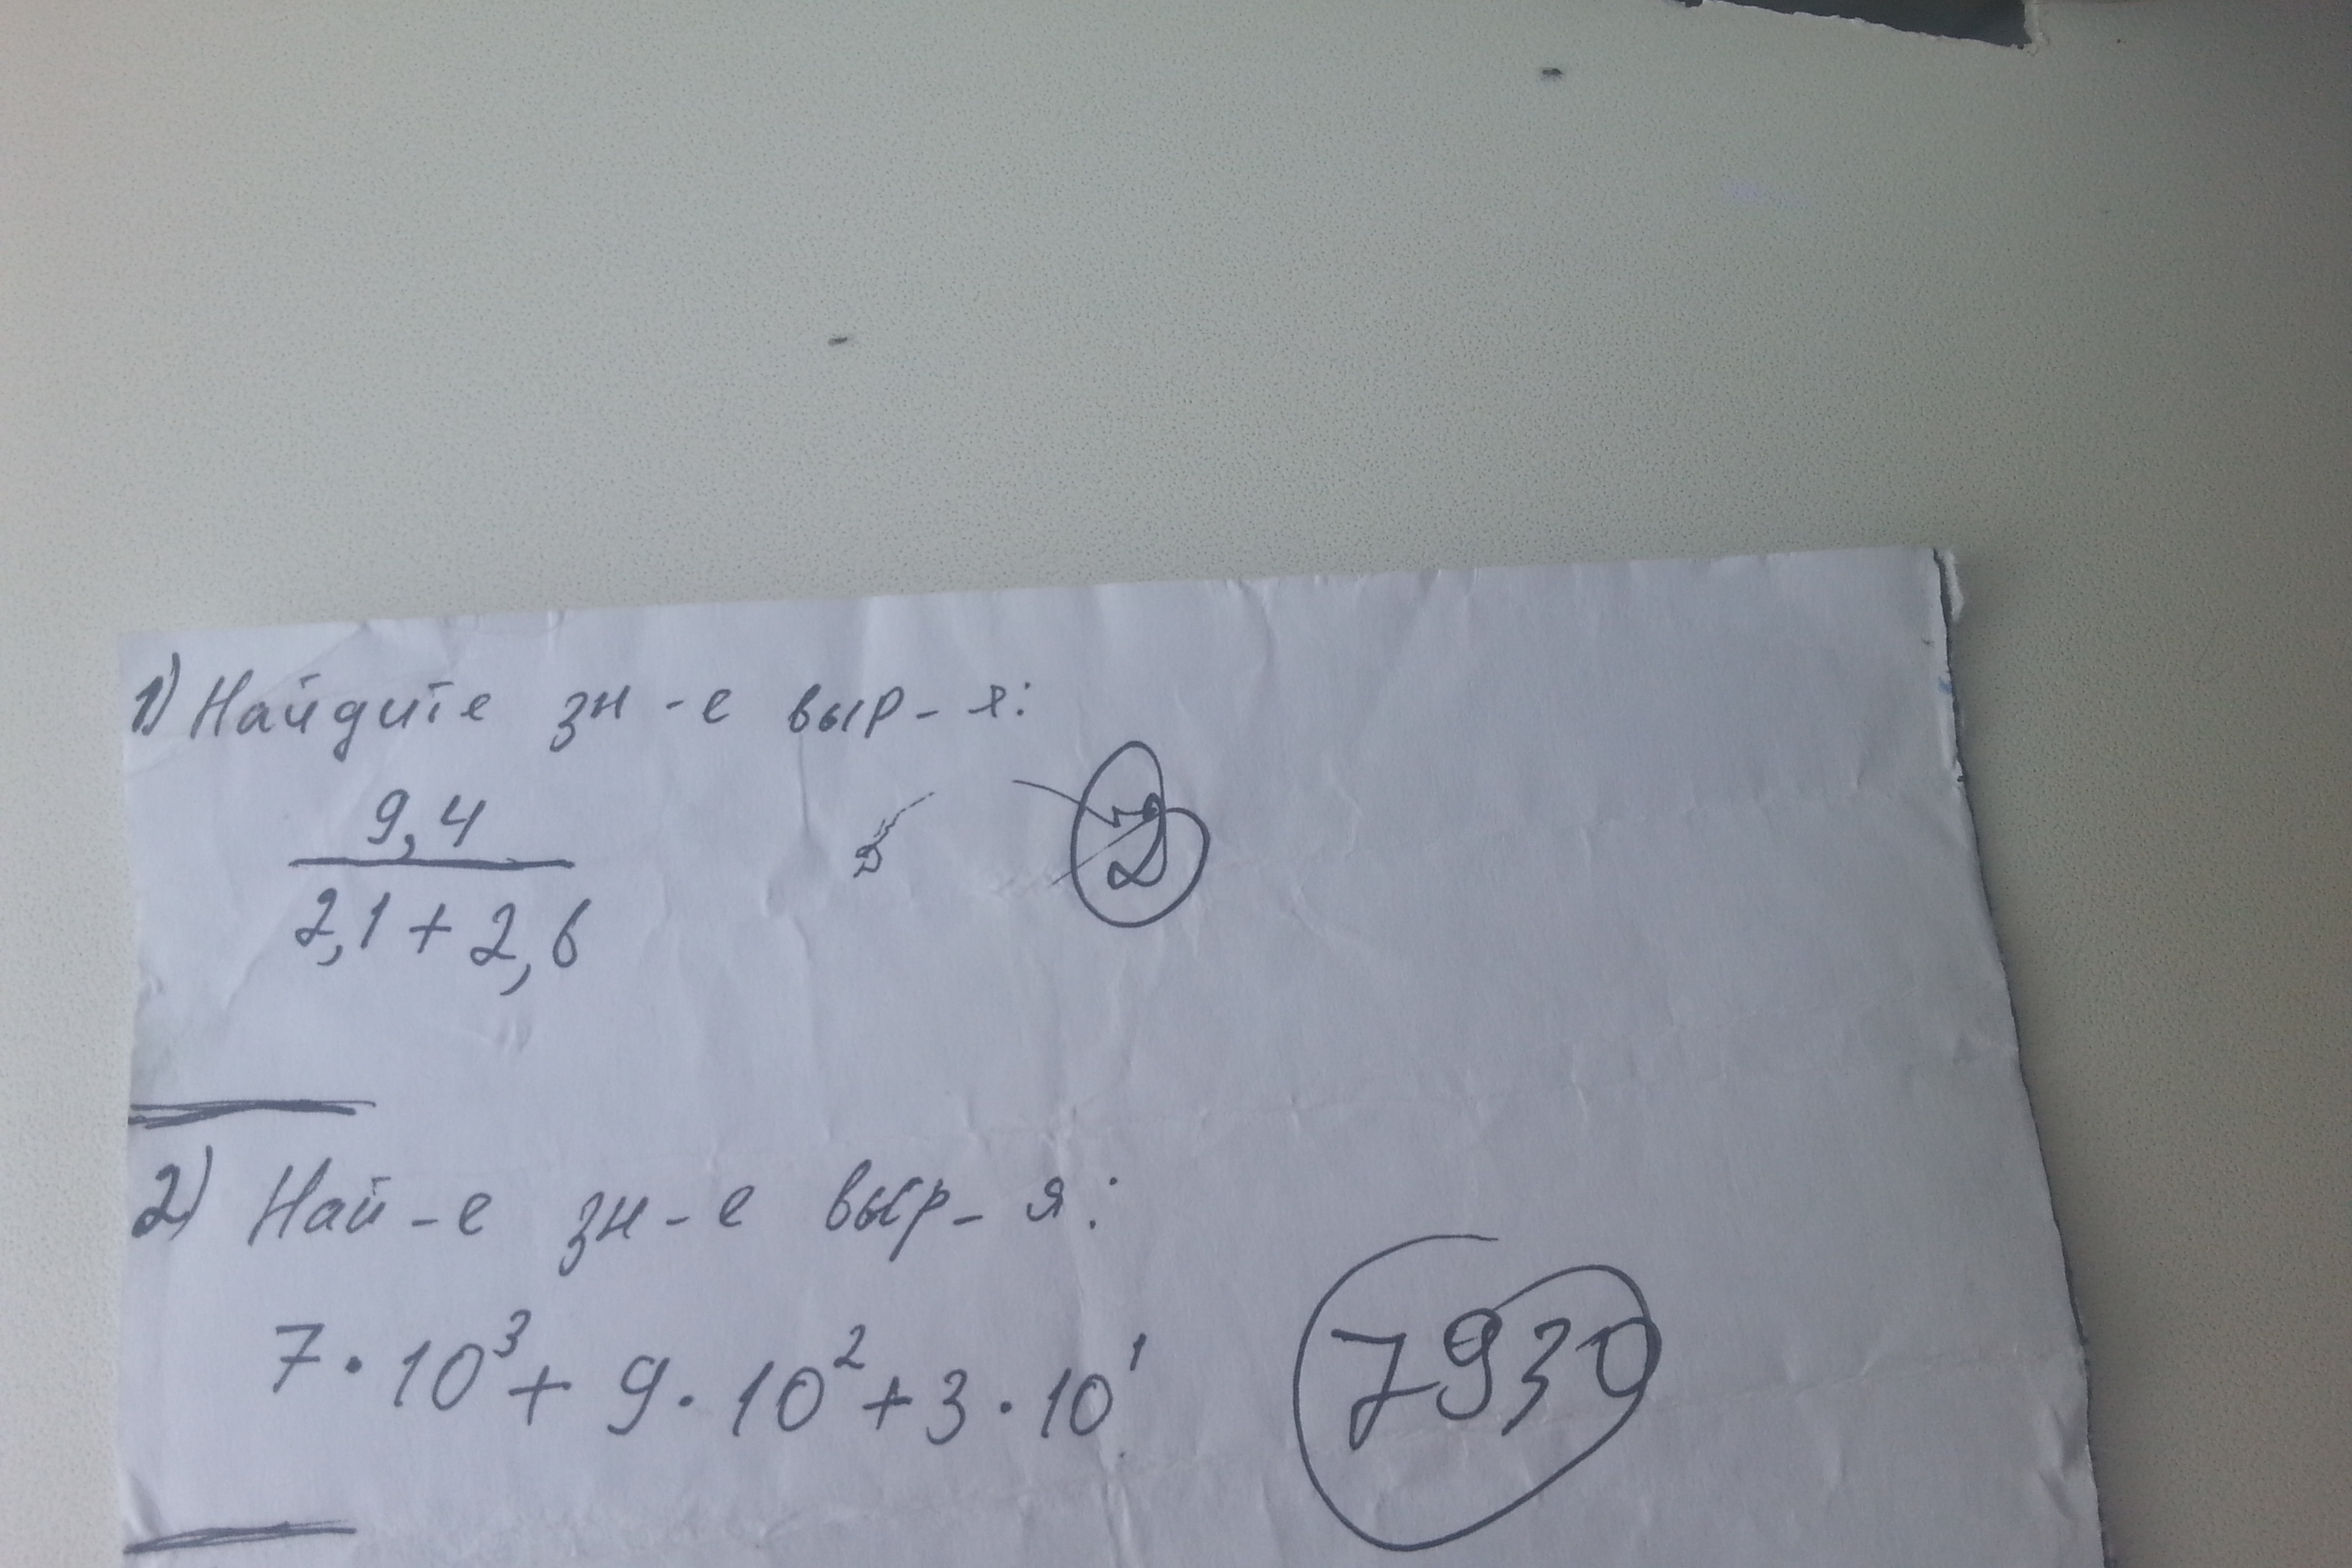 1) Найдите зн-е выр-я:
9,4
2,1 + 2,6
2
2) Най-е зн-е выр-я:
7 · 10³ + 9 · 10² + 3 · 10¹
7930